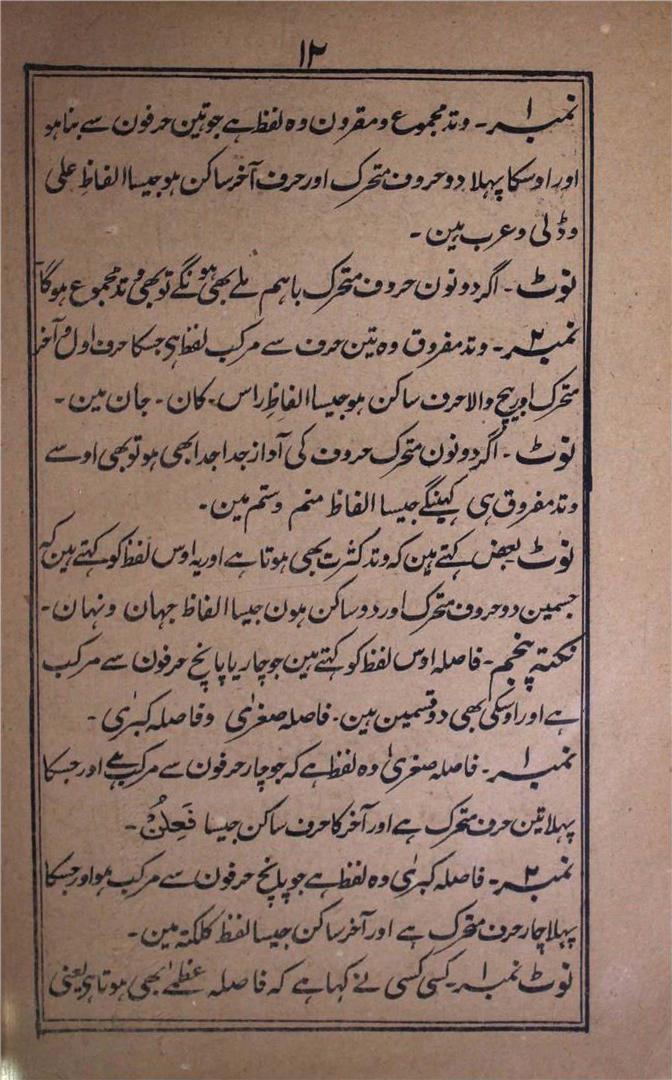 ۱۲
نمبر۱۔ وتد مجموع و مقرون وہ لفظ ہے جو تین حرفون سے بنا ہو
اور اوسکا پہلا دو حروف متحرک اور حرف آخر ساکن ہو جیسا الفاظِ علی
و ڈلی و عرب مین ۔
نوٹ ۔ اگر دونون حروف متحرک باہم ملے بھی ہونگے تو بھی وتد مجموع ہوگا
نمبر۲۔ وتد مفروق وہ تین حرف سے مرکب لفظ ہی جسکا حرف اول و آخر
متحرک اور بیچ والا حرف ساکن ہو جیسا الفاظِ راس ۔ کان ۔ جان مین ۔
نوٹ ۔ اگر دونون متحرک حروف کی آواز جدا جدا بھی ہو تو بھی اوسے
وتد مفروق ہی کہینگے جیسا الفاظ منم و ستم مین ۔
نوٹ بعض کہتے ہین کہ وتد کثرت بھی ہوتا ہے اور یہ اوس لفظ کو کہتے ہین کہ
جسمین دو حروف متحرک اور دو ساکن ہون جیسا الفاظ جہان و نہان ۔
نکتہ پنجم ۔ فاصلہ اوس لفظ کو کہتے ہین جو چار یا پانچ حرفون سے مرکب
ہے اور اوسکی بھی دو قسمین ہین ۔ فاصلہ صغریٰ و فاصلہ کبریٰ ۔
نمبر۱۔ فاصلہ صغریٰ وہ لفظ ہے کہ جو چار حرفون سے مرکب ہے اور جسکا
پہلا تین حرف متحرک ہے اور آخر کا حرف ساکن جیسا فَعِلُنْ ۔
نمبر۲۔ فاصلہ کبریٰ وہ لفظ ہے جو پانچ حرفون سے مرکب ہو اور جسکا
پہلا چار حرف متحرک ہے اور آخر ساکن جیسا لفظ کلکتہ مین ۔
نوٹ نمبر۱۔ کسی کسی نے کہا ہے کہ فاصلہ عظمےٰ بھی ہوتا ہی یعنی